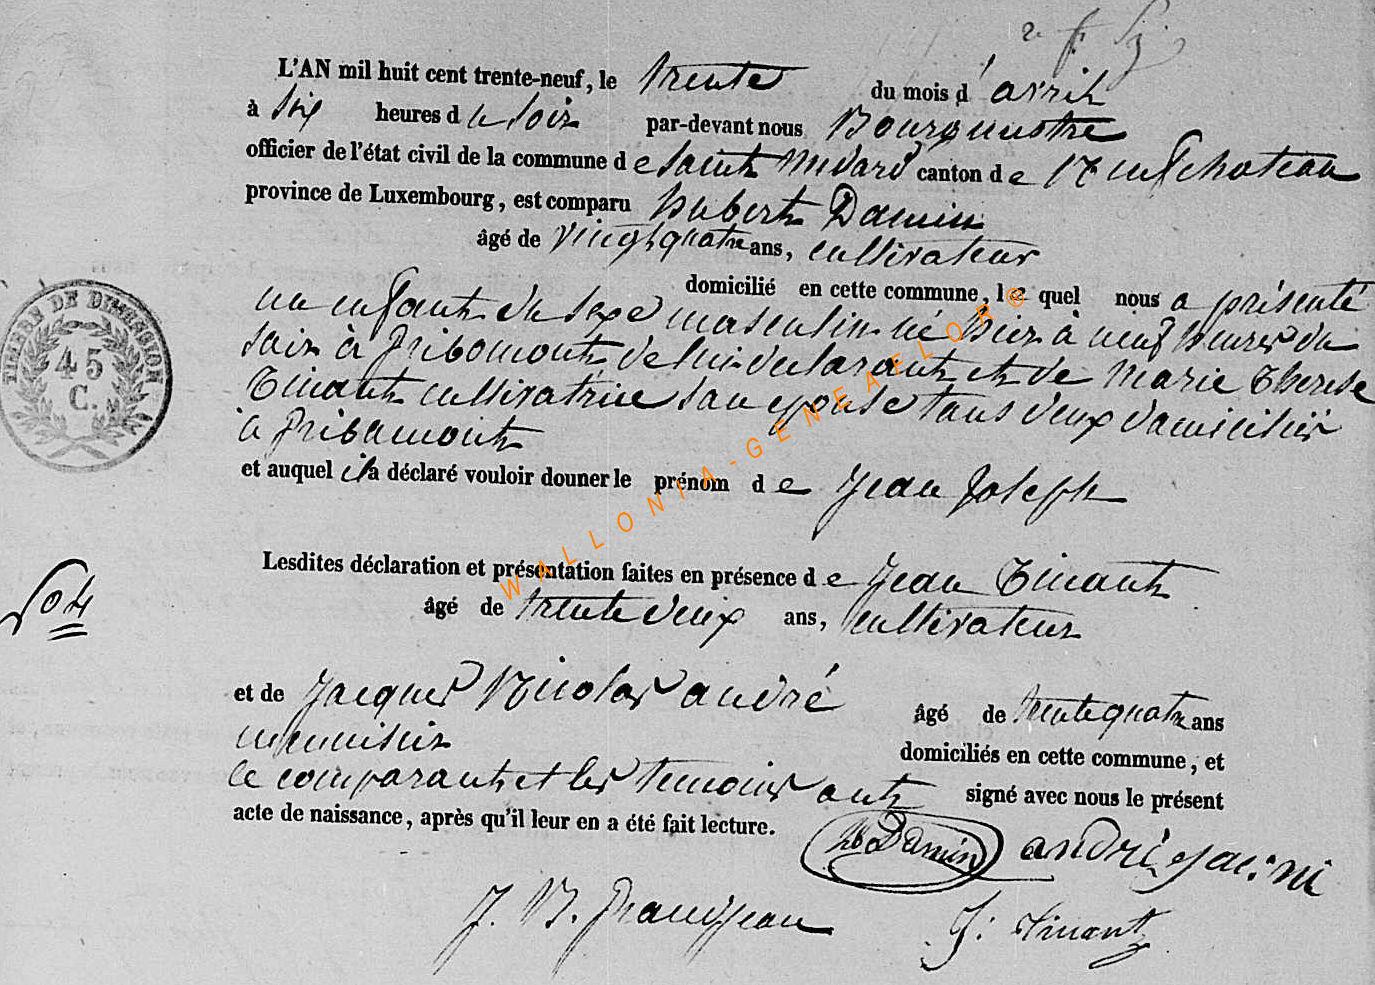 L'AN mil huit cent trente-neuf, le trente du mois d'avril
à six heures du soir par-devant nous Bourgmestre
officier de l'état civil de la commune de Saint Médard canton de Neufchateau
province de Luxembourg, est comparu hubert Damin
âgé de vingt quatre ans, cultivateur
domicilié en cette commune, le quel nous a présenté
un enfant du sexe masculin né hier à neuf heures du
soir à fribomont de lui declarant et de Marie Therese
Tinant cultivatrice son epouse tous deux domiciliés
à fribomont
et auquel il a déclaré vouloir donner le prénom de Jean Joseph
Lesdites déclaration et présentation faites en présence de Jean Tinant
âgé de trente deux ans, cultivateur
et de Jacques Nicolas andré âgé de trente quatre ans
menuisier domiciliés en cette commune, et
le comparant et les temoins ont signé avec nous le présent
acte de naissance, après qu'il leur en a été fait lecture.
h Damin andré
J. B. Grandjean J: Tinant
TIMBRE DE DIMENSION
45
C.
WALLONIA-GENEALOR©